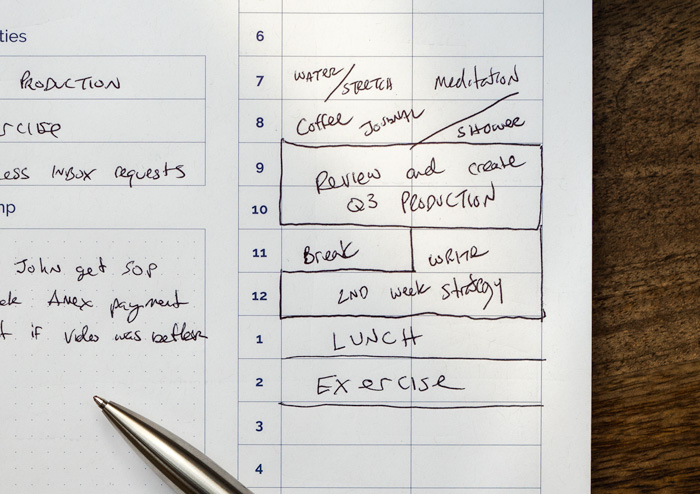 ties
PRODUCTION
rcise
ess INBOX requests
mp
John get SOP
Amex payment
if video was better
6
7 WATER/STRETCH Meditation
8 Coffee JOURNAL / SHOWER
9 Review and create
10 Q3 PRODUCTION
11 Break WRITE
12 2ND week Strategy
1 LUNCH
2 Exercise
3
4